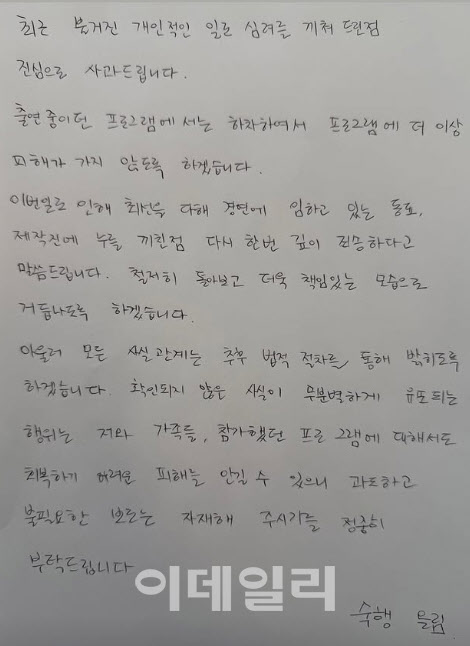 최근 불거진 개인적인 일로 심려를 끼쳐 드린점
진심으로 사과드립니다.
출연 중이던 프로그램에서는 하차하여서 프로그램에 더 이상
피해가 가지 않도록 하겠습니다.
이번일로 인해 최선을 다해 경연에 임하고 있는 동료,
제작진에 누를 끼친점 다시 한번 깊이 죄송하다고
말씀드립니다. 철저히 돌아보고 더욱 책임있는 모습으로
거듭나도록 하겠습니다.
아울러 모든 사실 관계는 추후 법적 절차를 통해 밝히도록
하겠습니다. 확인되지 않은 사실이 무분별하게 유포되는
행위는 저와 가족들, 참가했던 프로그램에 대해서도
회복하기 어려운 피해를 안길 수 있으니 과도하고
불필요한 보도는 자제해 주시기를 정중히
부탁드립니다
이데일리
숙행 올림